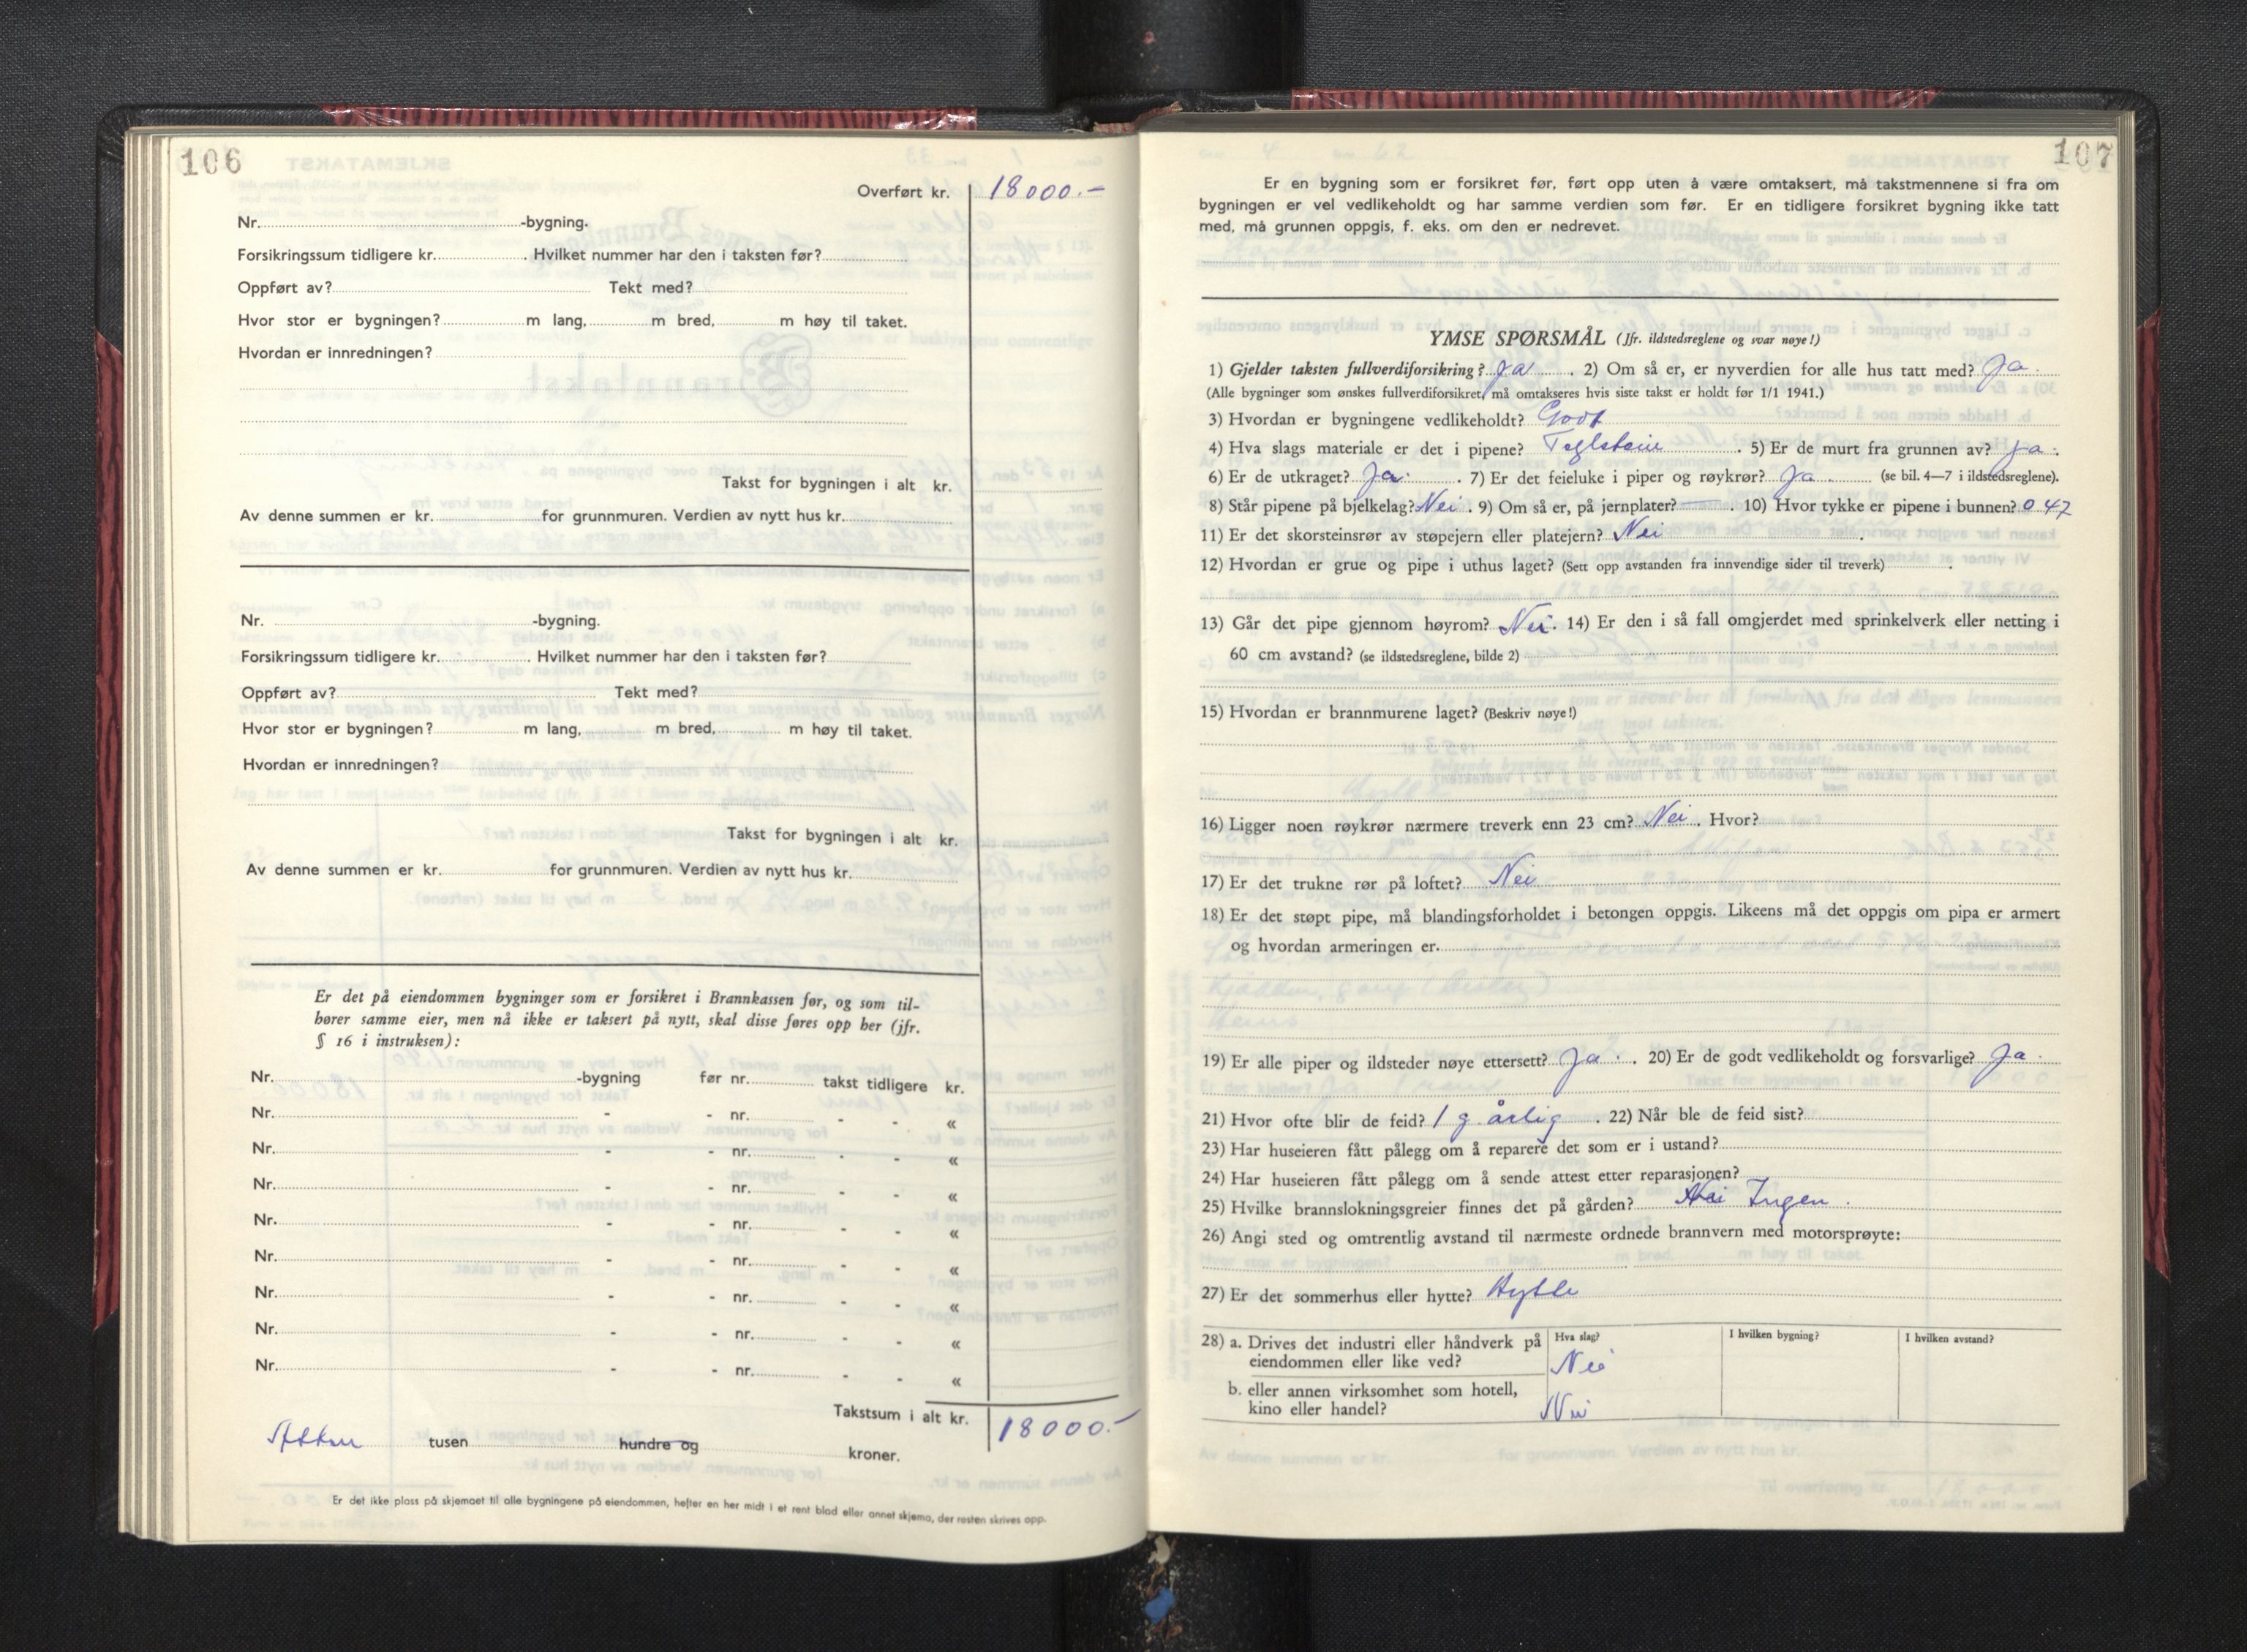 106
Overført kr. 18000.-
Nr. -bygning.
Forsikringssum tidligere kr. . Hvilket nummer har den i taksten før?
Oppført av? Tekt med?
Hvor stor er bygningen? m lang, m bred, m høy til taket.
Hvordan er innredningen?
Takst for bygningen i alt kr.
Av denne summen er kr. for grunnmuren. Verdien av nytt hus kr.
Nr. -bygning.
Forsikringssum tidligere kr. . Hvilket nummer har den i taksten før?
Oppført av? Tekt med?
Hvor stor er bygningen? m lang, m bred, m høy til taket.
Hvordan er innredningen?
Takst for bygningen i alt kr.
Av denne summen er kr. for grunnmuren. Verdien av nytt hus kr.
Er det på eiendommen bygninger som er forsikret i Brannkassen før, og som til-
hører samme eier, men nå ikke er taksert på nytt, skal disse føres opp her (jfr.
§ 16 i instruksen):
Nr. -bygning før nr. takst tidligere kr.
Nr. - - nr. - - «
Nr. - - nr. - - «
Nr. - - nr. - - «
Nr. - - nr. - - «
Nr. - - nr. - - «
Nr. - - nr. - - «
Nr. - - nr. - - «
Nr. - - nr. - - «
Takstsum i alt kr. 18000.-
Atten tusen hundre og kroner.
Er det ikke plass på skjemaet til alle bygningene på eiendommen, hefter en her midt i et rent blad eller annet skjema, der resten skrives opp.
107
Er en bygning som er forsikret før, ført opp uten å være omtaksert, må takstmennene si fra om
bygningen er vel vedlikeholdt og har samme verdien som før. Er en tidligere forsikret bygning ikke tatt
med, må grunnen oppgis, f. eks. om den er nedrevet.
YMSE SPØRSMÅL (Jfr. ildstedsreglene og svar nøye!)
1) Gjelder taksten fullverdiforsikring? Ja . 2) Om så er, er nyverdien for alle hus tatt med? Ja.
(Alle bygninger som ønskes fullverdiforsikret, må omtakseres hvis siste takst er holdt før 1/1 1941.)
3) Hvordan er bygningene vedlikeholdt? Godt
4) Hva slags materiale er det i pipene? Teglstein . 5) Er de murt fra grunnen av? Ja.
6) Er de utkraget? Ja. . 7) Er det feieluke i piper og røykrør? Ja . (se bil. 4—7 i ildstedsreglene).
8) Står pipene på bjelkelag? Nei . 9) Om så er, på jernplater? — . 10) Hvor tykke er pipene i bunnen? 0 47
11) Er det skorsteinsrør av støpejern eller platejern? Nei .
12) Hvordan er grue og pipe i uthus laget? (Sett opp avstanden fra innvendige sider til treverk) .
13) Går det pipe gjennom høyrom? Nei. 14) Er den i så fall omgjerdet med sprinkelverk eller netting i
60 cm avstand? (se ildstedsreglene, bilde 2)
15) Hvordan er brannmurene laget? (Beskriv nøye!)
16) Ligger noen røykrør nærmere treverk enn 23 cm? Nei . Hvor?
17) Er det trukne rør på loftet? Nei
18) Er det støpt pipe, må blandingsforholdet i betongen oppgis. Likeens må det oppgis om pipa er armert
og hvordan armeringen er.
19) Er alle piper og ildsteder nøye ettersett? Ja . . 20) Er de godt vedlikeholdt og forsvarlige? Ja .
21) Hvor ofte blir de feid? 1 g. årlig . 22) Når ble de feid sist?
23) Har huseieren fått pålegg om å reparere det som er i ustand?
24) Har huseieren fått pålegg om å sende attest etter reparasjonen?
25) Hvilke brannslokningsgreier finnes det på gården? Nei Ingen .
26) Angi sted og omtrentlig avstand til nærmeste ordnede brannvern med motorsprøyte:
27) Er det sommerhus eller hytte? Hytte
28) a. Drives det industri eller håndverk på Hva slag? I hvilken bygning? I hvilken avstand?
eiendommen eller like ved? Nei
b. eller annen virksomhet som hotell,
kino eller handel? Nei